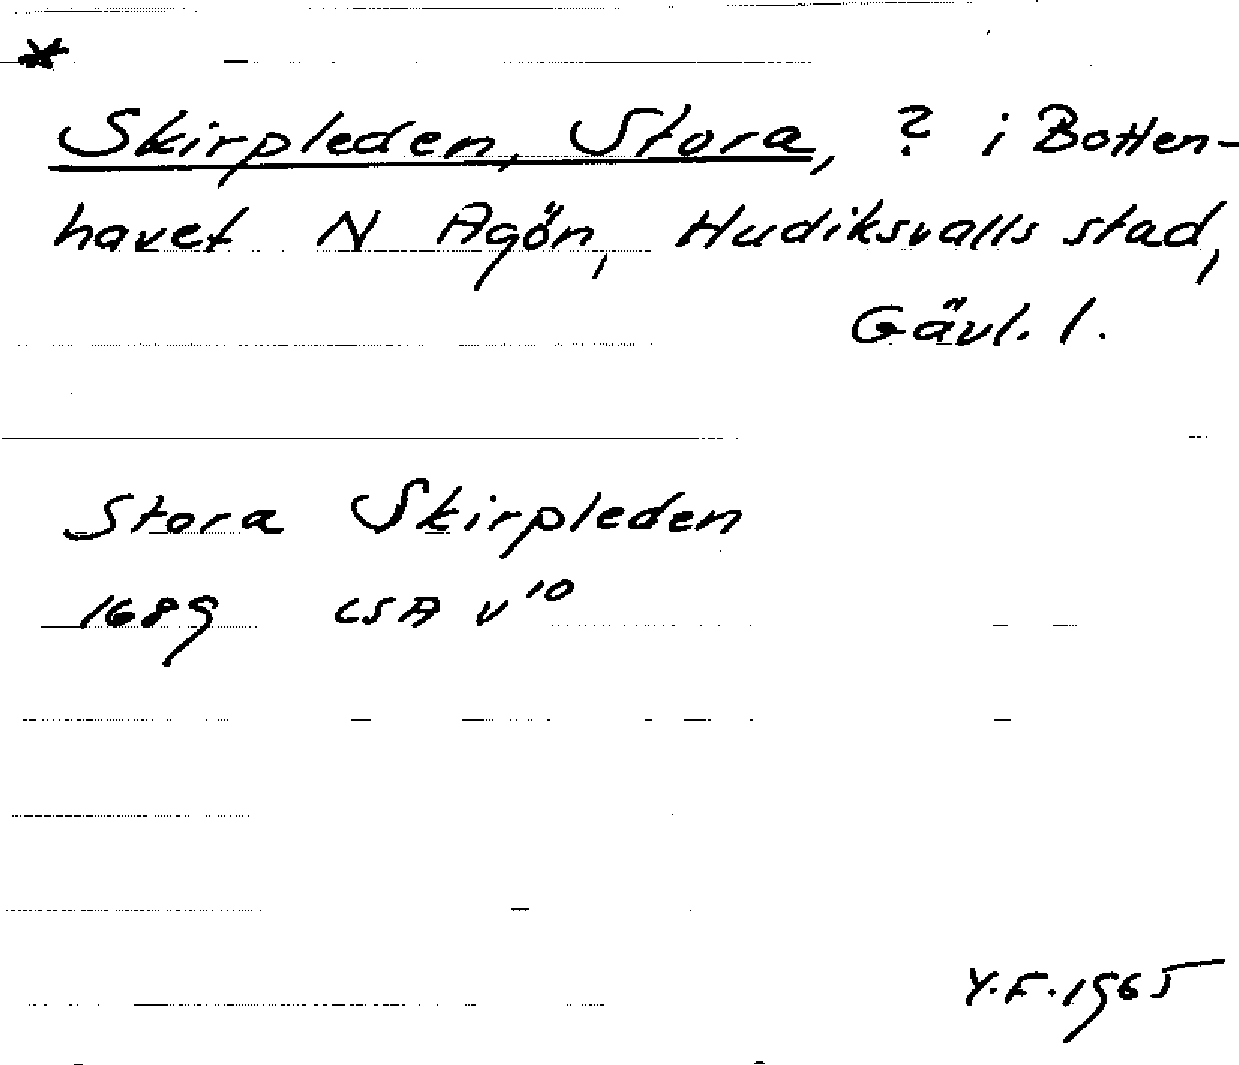 *
Skirpleden, Stora, ? i Botten-
havet N Agön, Hudiksvalls stad,
Gävl. l.
Stora Skirpleden
1689 LSA v 10
Y.F. 1965